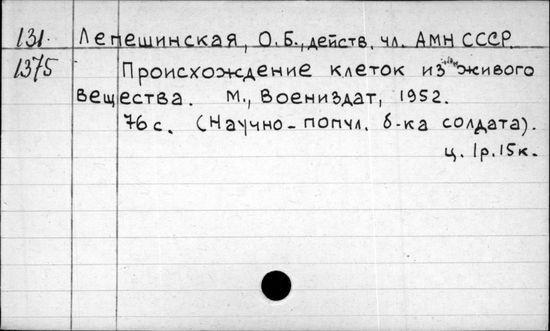 131. Лепешинская, О.Б., действ. чл. АМН СССР.
1375 Происхождение клеток из живого
вещества. М., Воениздат, 1952.
76 с. (Научно-попул. б-ка солдата).
ц. 1р.15к.